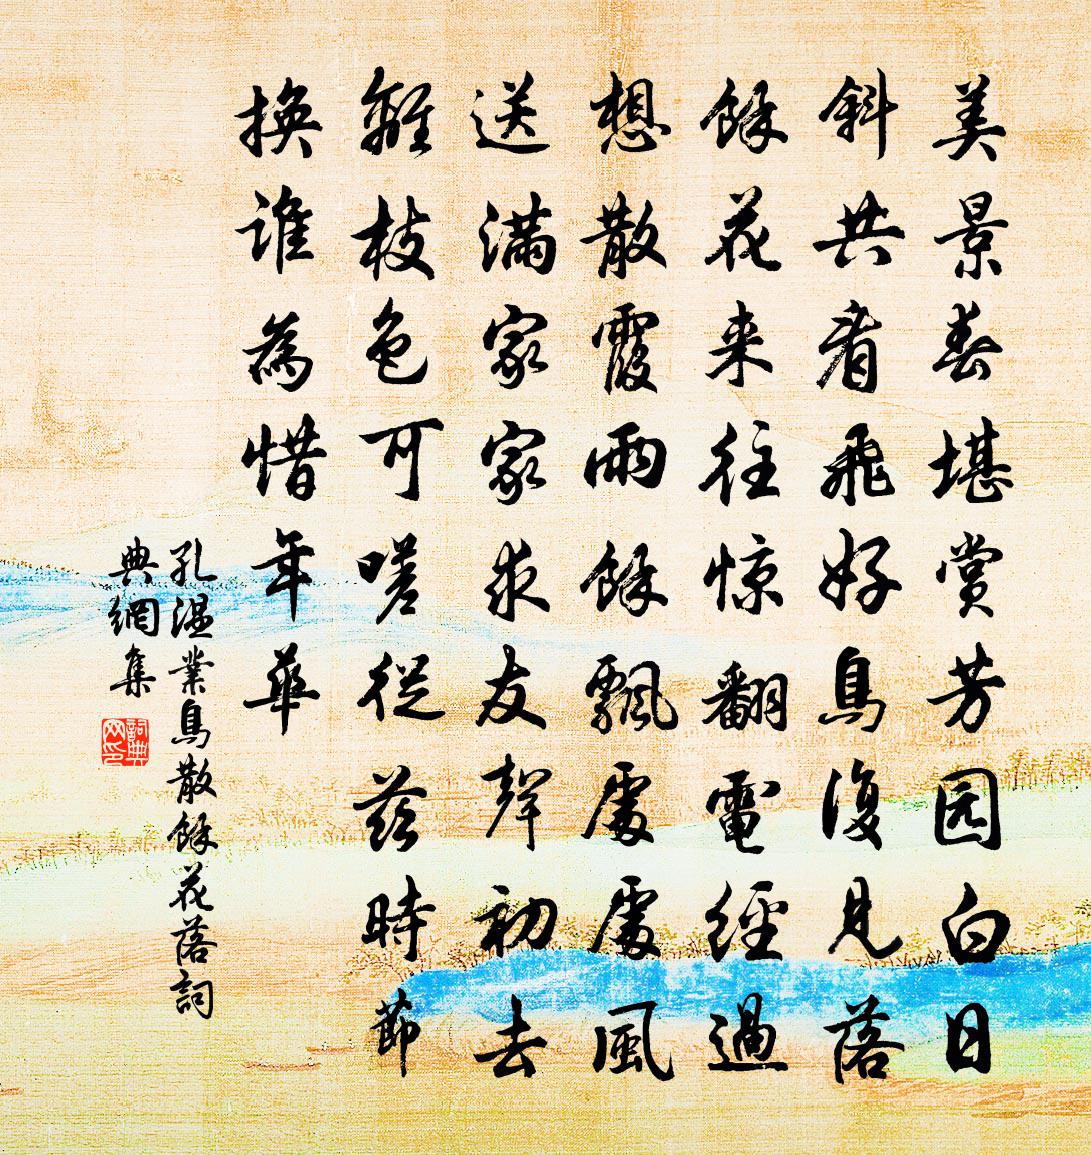 美景春堪賞芳园白日
斜共看飛好鳥復見落
餘花来往惊翻電經過
想散霞雨餘飄處處風
送滿家家求友聲初去
離枝色可嗟從茲時節
換誰為惜年華
孔温業鳥散餘花落詞
典網集
詞典
网印